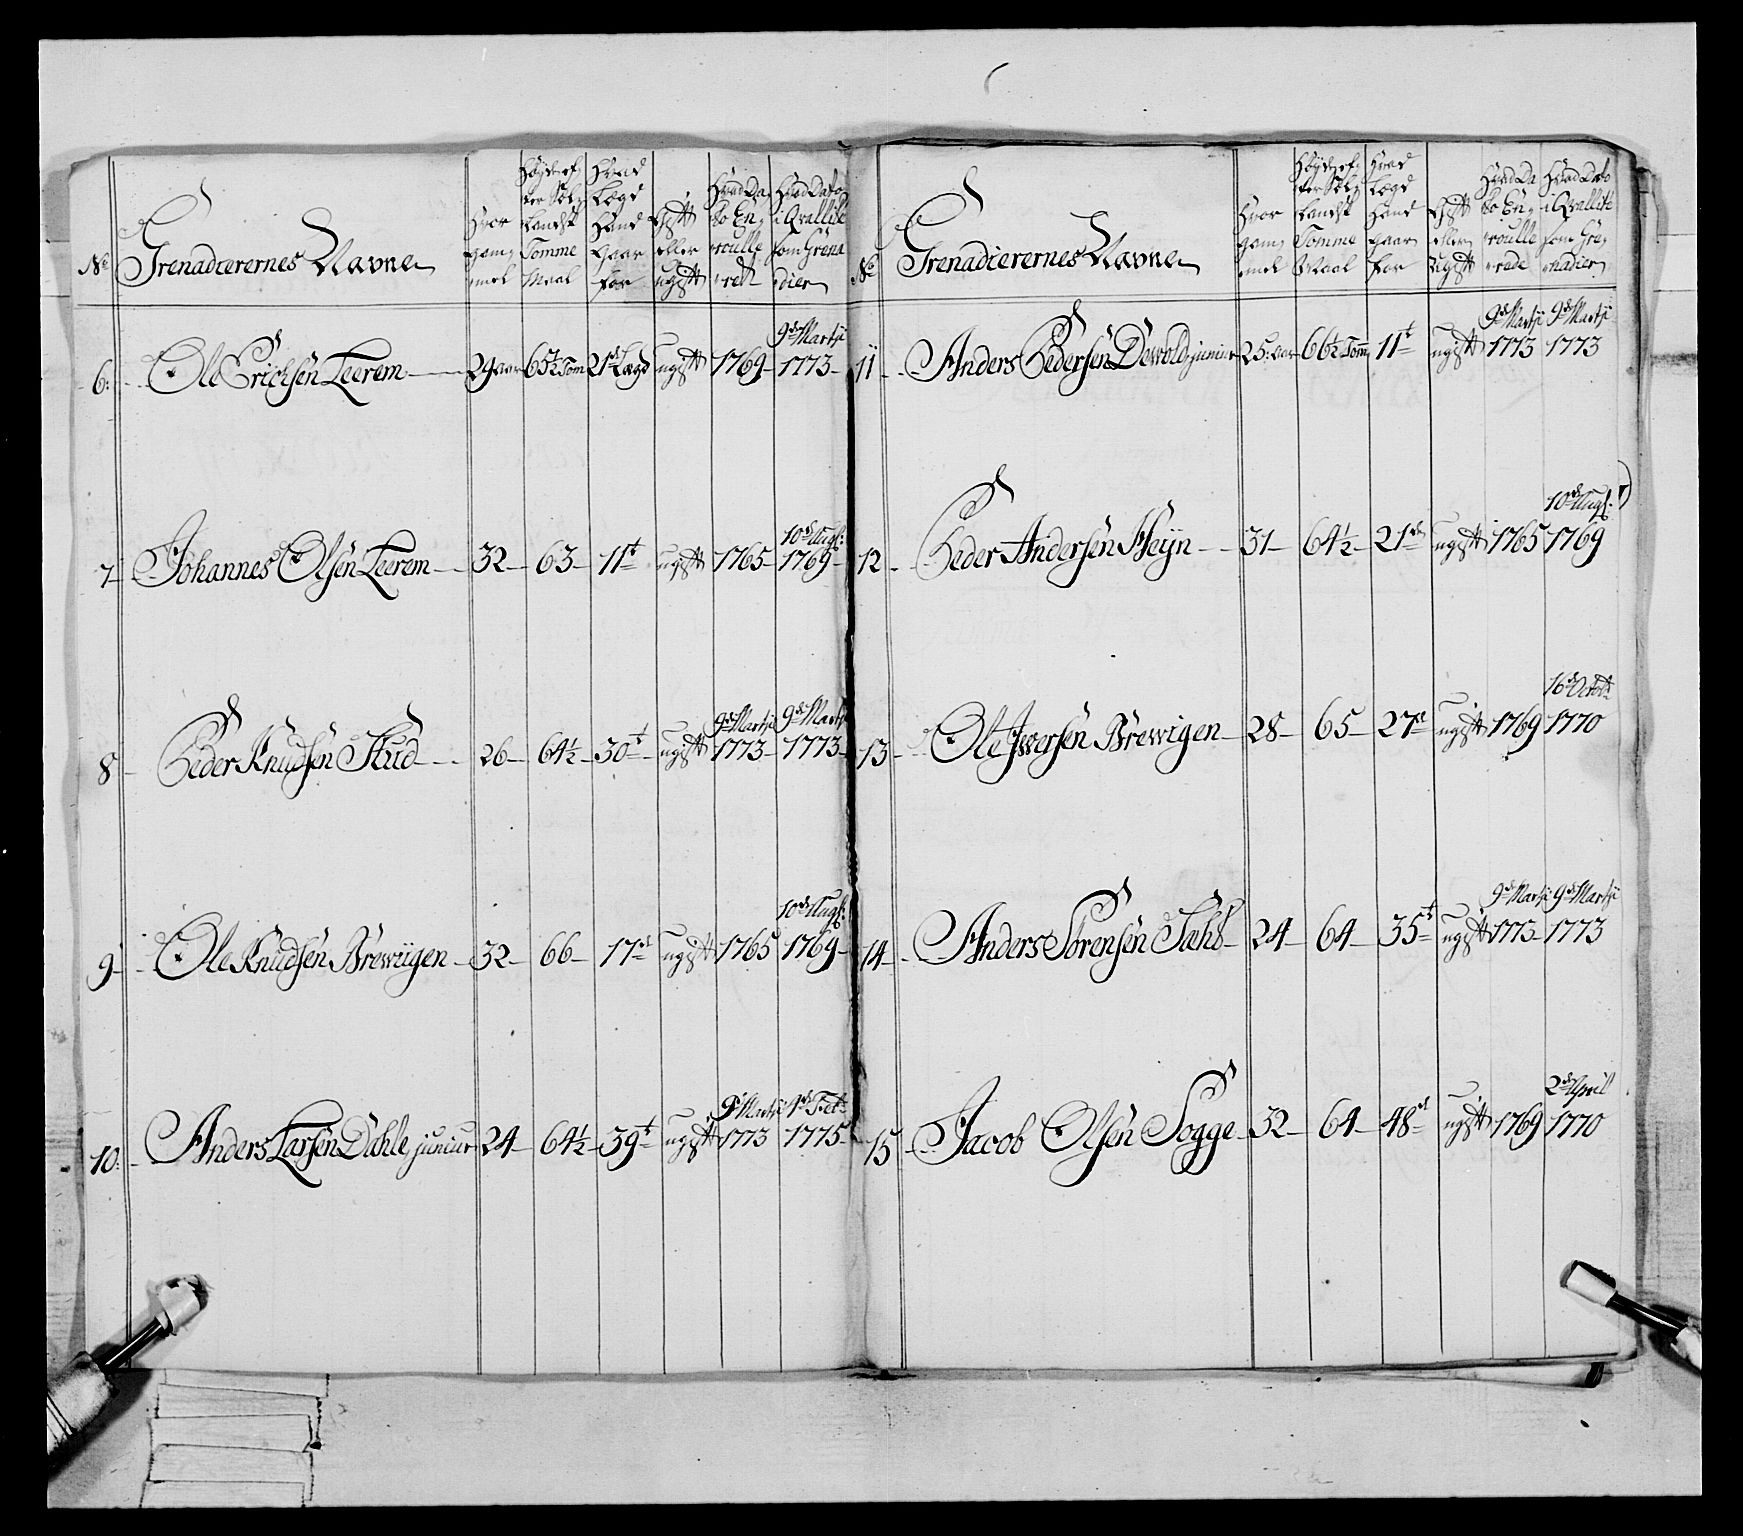 No
Grenadcerernes Navne
Hvor
gam
mel
Høyde ef
ter Sel
landsk
Tomme
Maal
Hvad
Lægd
Hand
gaar
for
Gift
eller
ugift
Hvad Da
to En
roulle
ret
Hvad Dato
i Qvallite
som Grena
dier
6. Ole Erichsen Leerem 29 aar 65½ Tom 21de Lægd ugift 1769 9de Martji 1773
7 Johannes Olsen Leerem 32 63 11t ugift 1765 10de Augs: 1769
8 Peder Knudsen Stud 26 64½ 30t ugift 9de Martji 1773 9de Martji 1773
9 Ole Knudsen Brewiigen 32 66 17de ugift 1765 10de Augs: 1769
10. Anders Larsen Dahle juniur 24 64½ 39t ugift 9de Martji 1773 1de Feb: 1775
No
Grenadierernes Navne
Hvor
gam
mel
Høyde ef
ter Sel
landsk
Tomme
Maal
Hvad
Lægd
Hand
gaar
for
Gift
eller
Ugift
Hvad Da
to En
roulle
rede
Hvad Dato
i Qvallite
som Gre
nadier
11 Anders Pedersen Dewold juniur 25: aar 66½ Tom 11t ugift 9de Martji 1773 9de Martji 1773
12 Peder Andersen Heyn 31 64½ 21de ugift 1765 10de Augs: 1769
13 Ole Iwersen Brewigen 28 65 27de ugift 1769 16de Octobr 1770
14 Anders Sørensen Sæhb 24 64 35t ugift 9de Martji 1773 9de Martji 1773
15 Jacob Olsen Sogge 32 64 48de ugift 1769 2de April 1770